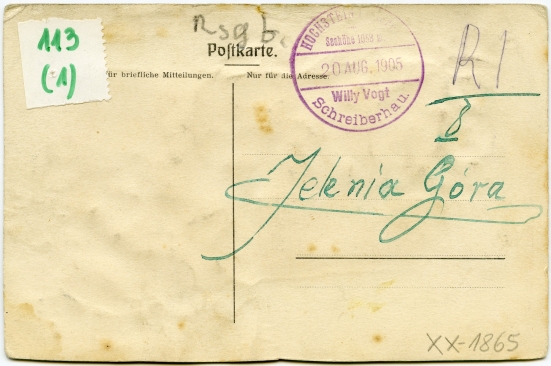 113
(1)
Rsgb.
Postkarte.
für briefliche Mitteilungen.
Nur für die Adresse.
Seehöhe 1058
20 AUG. 1905
Willy Vogt
Schreiberhau.
R1
8
Jelenia Góra
XX-1865